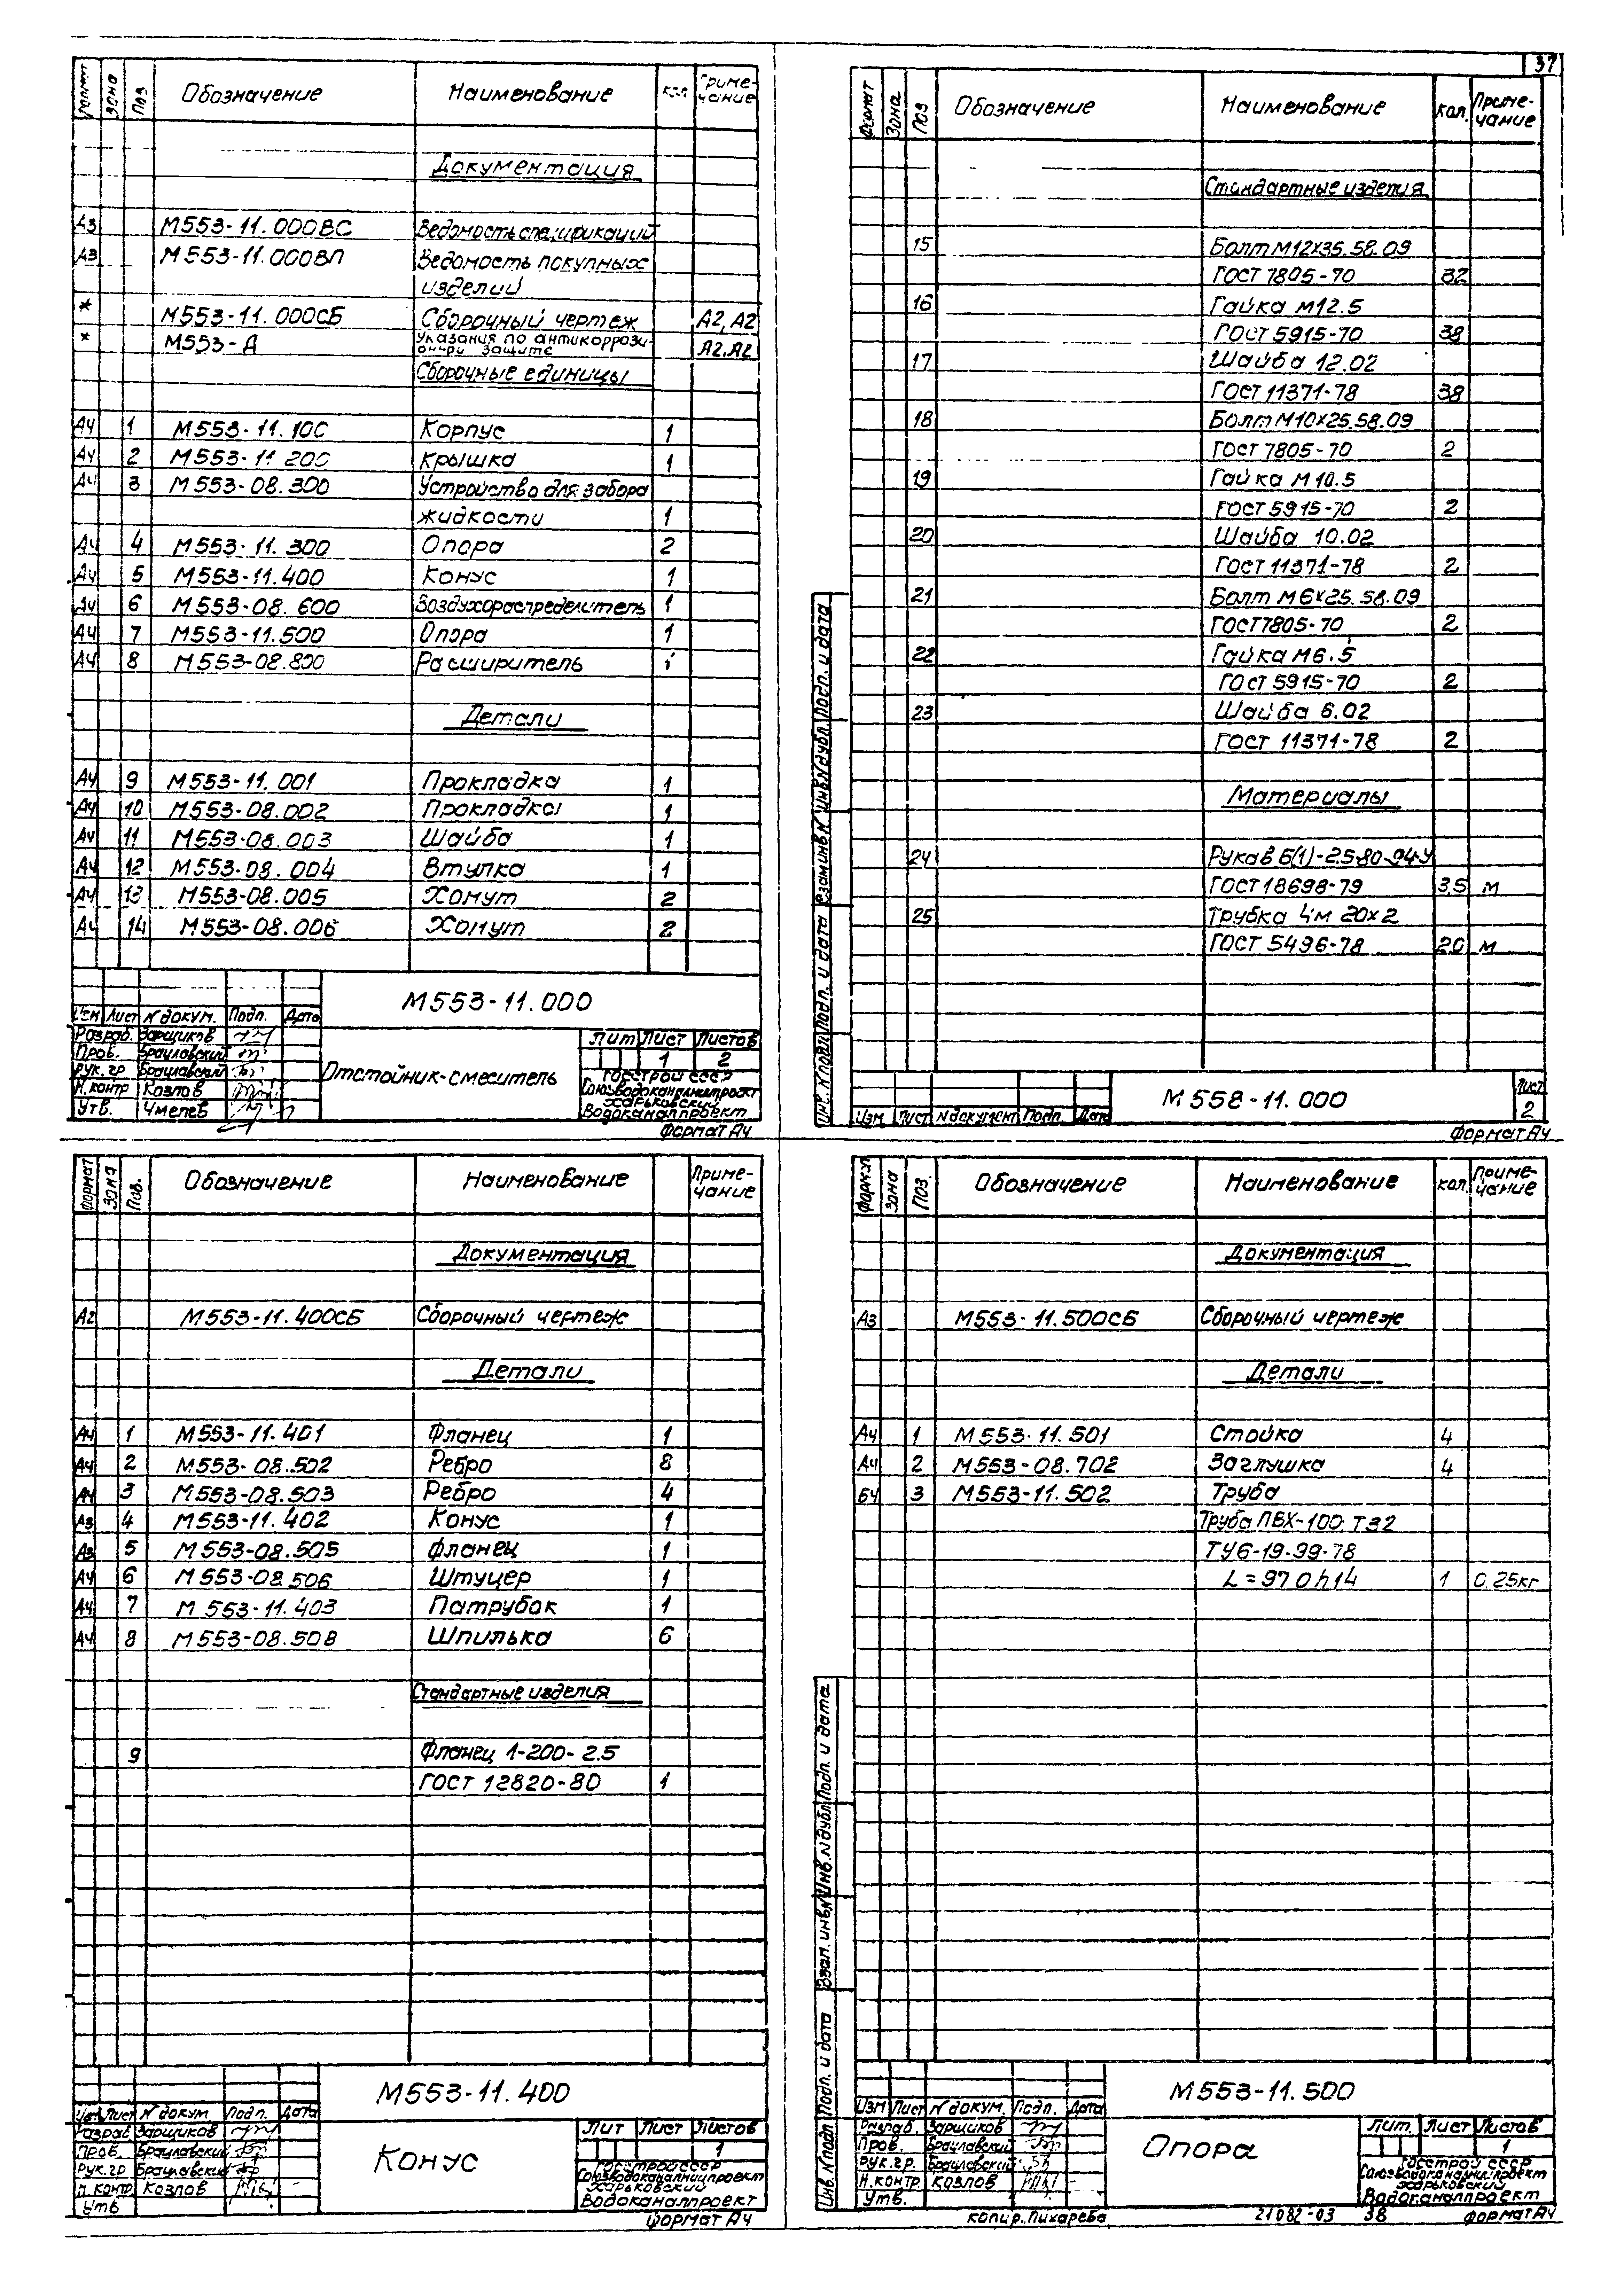 37
Формат Зона Поз Обозначение Наименование кол Приме-
чание
Документация
А3 М553-11.000ВС Ведомость спецификаций
А3 М553-11.000ВП Ведомость покупных
изделий
* М553-11.000СБ Сборочный чертеж А2, А2
* М553-Д Указания по антикоррози-
онной защите А2, А2
Сборочные единицы
А4 1 М553-11.100 Корпус 1
А4 2 М553-11.200 Крышка 1
А4 3 М553-08.300 Устройство для забора
жидкости 1
А4 4 М553-11.300 Опора 2
А4 5 М553-11.400 Конус 1
А4 6 М553-08.600 Воздухораспределитель 1
А4 7 М553-11.500 Опора 1
А4 8 М553-08.800 Расширитель 1
Детали
А4 9 М553-11.001 Прокладка 1
А4 10 М553-08.002 Прокладка 1
А4 11 М553-08.003 Шайба 1
А4 12 М553-08.004 Втулка 1
А4 13 М553-08.005 Хомут 2
А4 14 М553-08.006 Хомут 2
М553-11.000
Изм Лист N докум. Подп. Дата
Разраб. Зарщиков
Пров. Брацлавский
Рук. гр Брацлавский
Н. контр Козлов
Утв. Чмелев
Отстойник-смеситель
Лит Лист Листов
1 2
Госстрой СССР
Союзводоканалниипроект
Харьковский
Водоканалпроект
Формат А4
Формат Зона Поз Обозначение Наименование Кол. Приме-
чание
Стандартные изделия
15 Болт М12х35.58.09
ГОСТ 7805-70 32
16 Гайка М12.5
ГОСТ 5915-70 38
17 Шайба 12.02
ГОСТ 11371-78 38
18 Болт М10х25.58.09
ГОСТ 7805-70 2
19 Гайка М10.5
ГОСТ 5915-70 2
20 Шайба 10.02
ГОСТ 11371-78 2
21 Болт М6х25.58.09
ГОСТ 7805-70 2
22 Гайка М6.5
ГОСТ 5915-70 2
23 Шайба 6.02
ГОСТ 11371-78 2
Материалы
24 Рукав Б(1)-2.5-80-94-У
ГОСТ 18698-79 3,5 м
25 Трубка 4м 20х2
ГОСТ 5496-78 2,0 м
Инв. N подл Подп. и дата Взам инв N Инв N дубл. Подп. и дата
Изм Лист N документ Подп. Дата
М558-11.000
Лист
2
Формат А4
Формат Зона Поз. Обозначение Наименование Приме-
чание
Документация
А2 М553-11.400СБ Сборочный чертеж
Детали
А4 1 М553-11.401 Фланец 1
А4 2 М553-08.502 Ребро 8
А4 3 М553-08.503 Ребро 4
А3 4 М553-11.402 Конус 1
А3 5 М553-08.505 Фланец 1
А4 6 М553-08.506 Штуцер 1
А4 7 М553-11.403 Патрубок 1
А4 8 М553-08.508 Шпилька 6
Стандартные изделия
9 Фланец 1-200-2.5
ГОСТ 12820-80 1
М553-11.400
Изм Лист N докум Подп. Дата
Разраб Зарщиков
Пров. Брацлавский
Рук. гр Брацлавский
Н. контр. Козлов
Утв
Конус
Лит Лист Листов
1
Госстрой СССР
Союзводоканалниипроект
Харьковский
Водоканалпроект
формат А4
Формат Зона Поз. Обозначение Наименование кол. Приме-
чание
Документация
А3 М553-11.500СБ Сборочный чертеж
Детали
А4 1 М553-11.501 Стойка 4
А4 2 М553-08.702 Заглушка 4
БЧ 3 М553-11.502 Труба
Труба ПВХ-100-Т32
ТУ6-19-99-78
L=970h14 1 0.25кг
Инв. N подл Подп. и дата Взам. инв. N Инв. N дубл Подп. и дата
М553-11.500
Изм Лист N докум. Подп. Дата
Разраб. Зарщиков
Пров. Брацлавский
Рук. гр. Брацлавский
Н. контр Козлов
Утв.
Опора
Лит. Лист Листов
1
Госстрой СССР
Союзводоканалниипроект
Харьковский
Водоканалпроект
копир. Пихарева 21082-03 38 формат А4